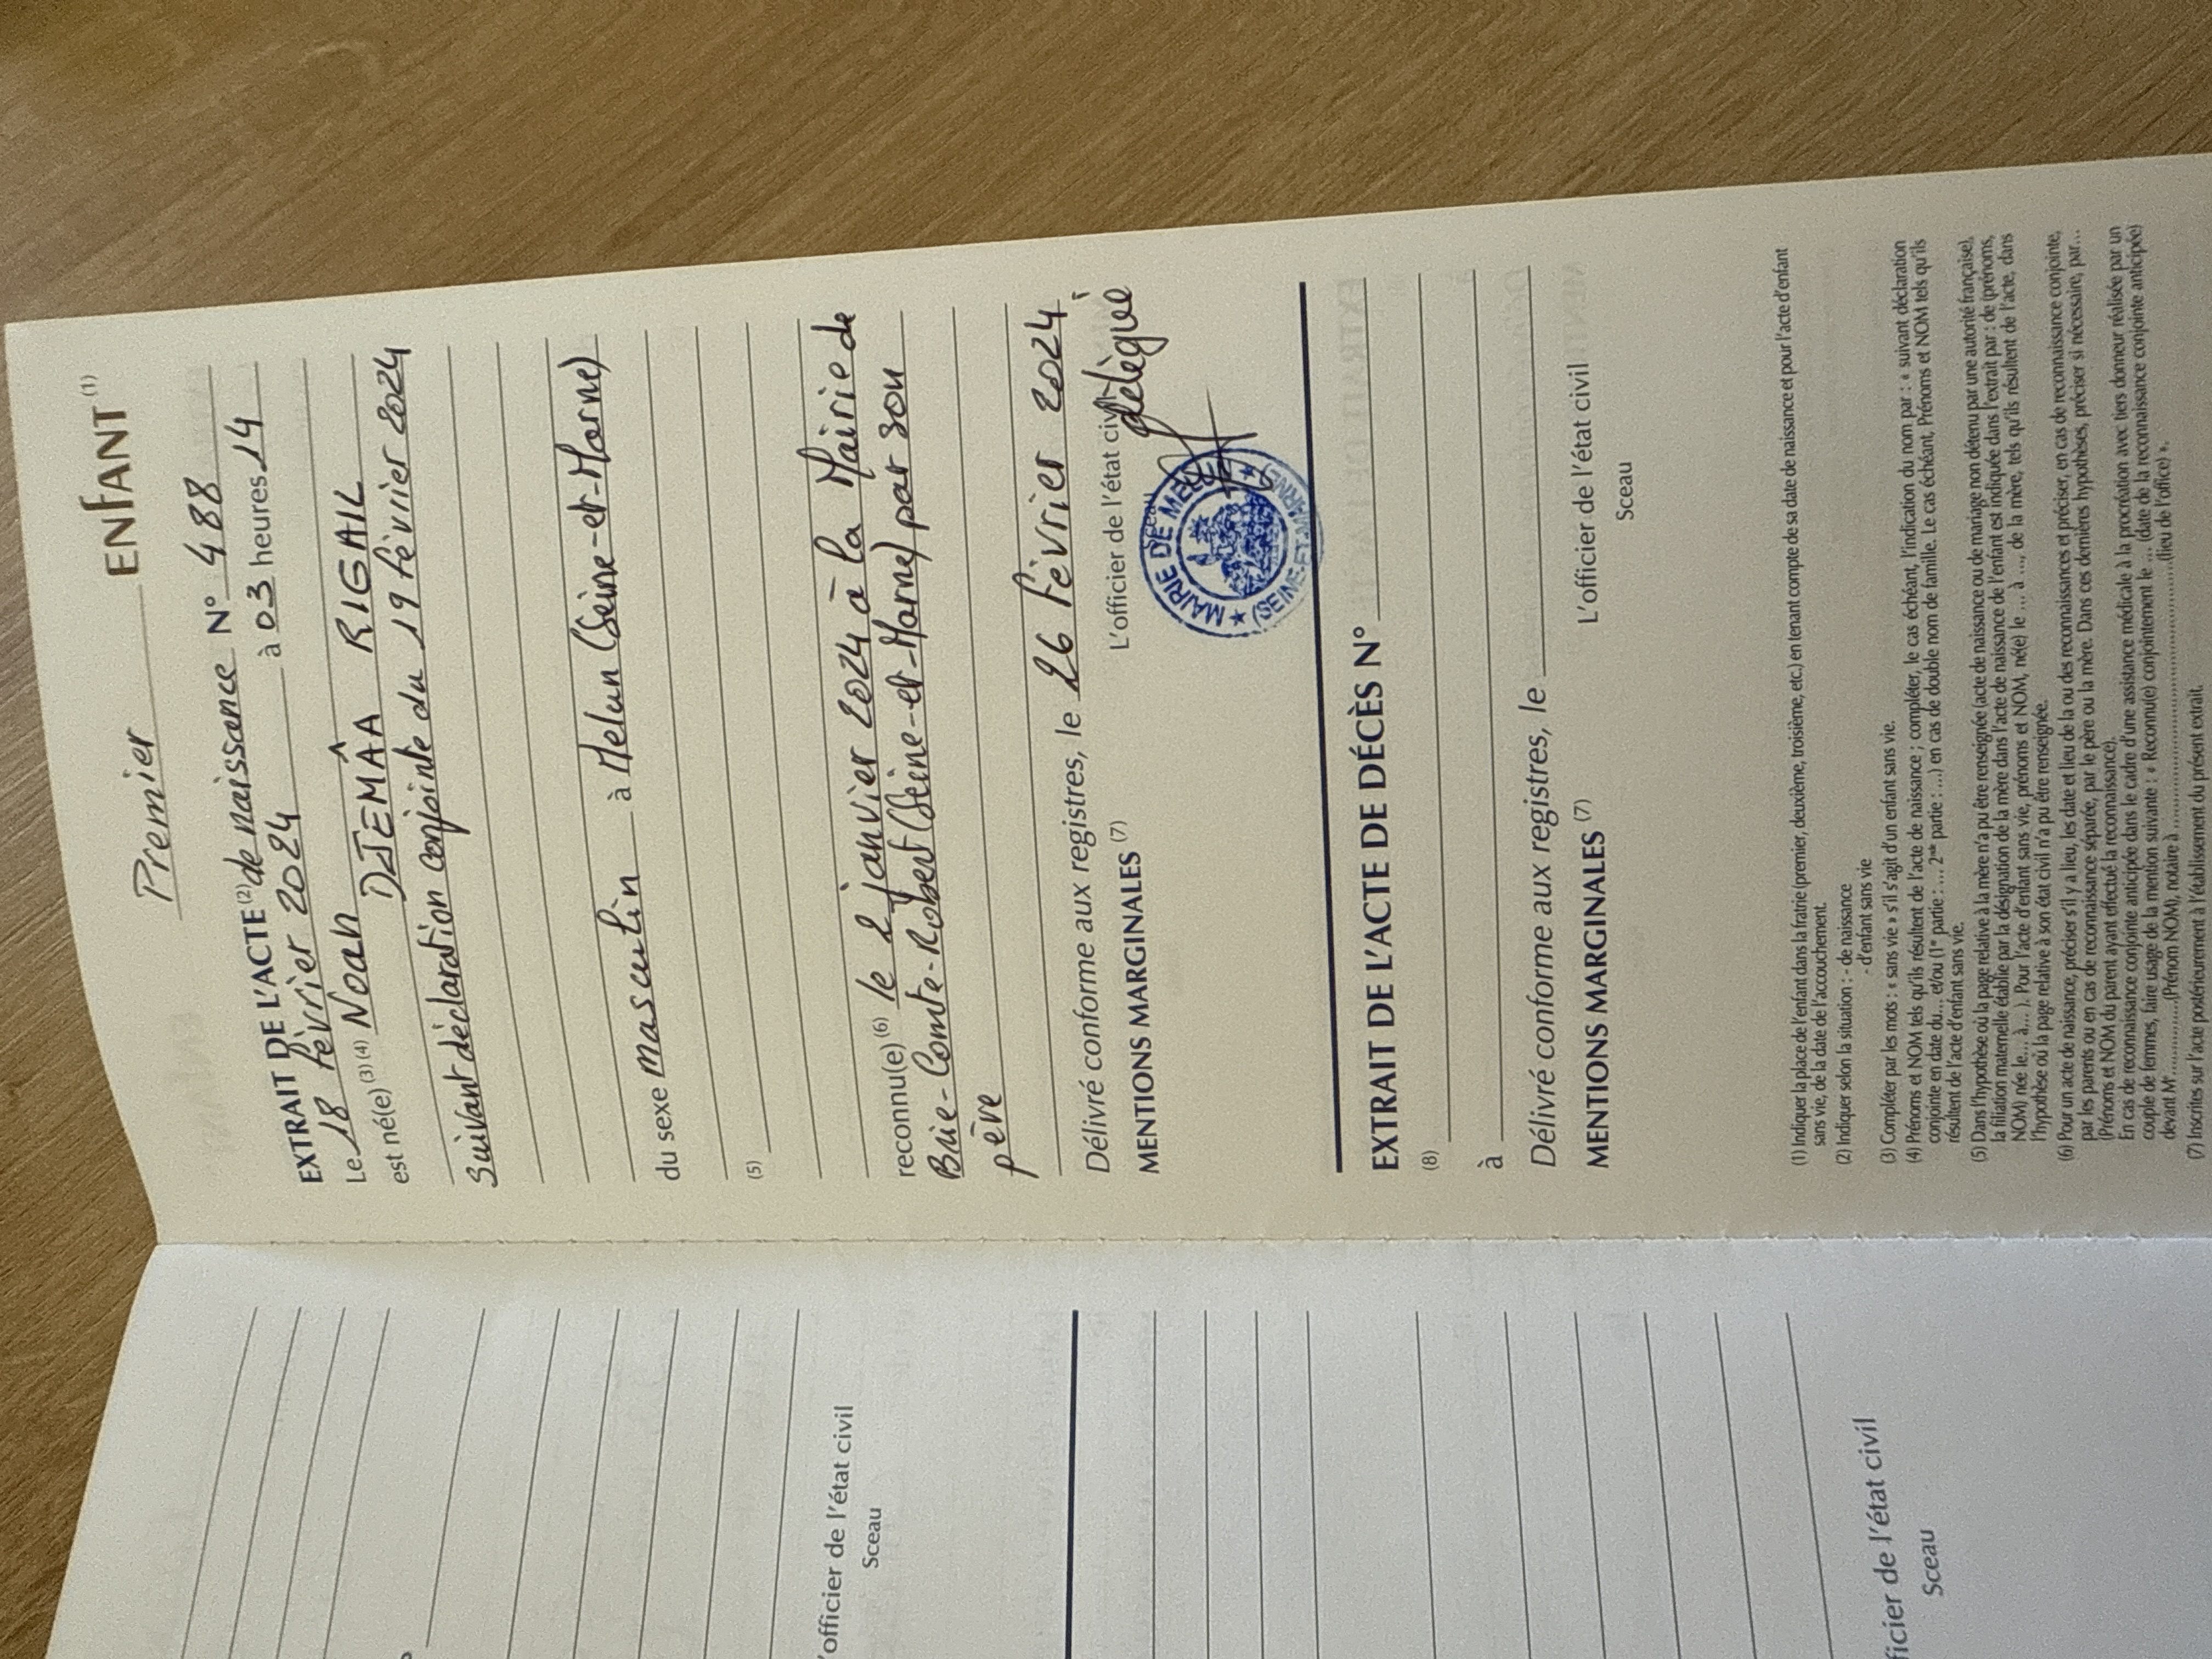 Premier ENFANT (1)
EXTRAIT DE L'ACTE (2) de naissance N° 488
Le 18 février 2024 à 03 heures 14
est né(e) (3) (4) Noah DJEMÂA RIGAIL
suivant déclaration conjointe du 19 février 2024
du sexe masculin à Melun (Seine-et-Marne)
(5)
reconnu(e) (6) le 2 janvier 2024 à la Mairie de
Brie-Comte-Robert (Seine-et-Marne) par son
père
Délivré conforme aux registres, le 26 février 2024
MENTIONS MARGINALES (7) L'officier de l'état civil délégué
Sceau
MAIRIE DE MELUN
(SEINE-ET-MARNE)
EXTRAIT DE L'ACTE DE DÉCÈS N°
(8)
à
Délivré conforme aux registres, le
MENTIONS MARGINALES (7) L'officier de l'état civil
Sceau
(1) Indiquer la place de l'enfant dans la fratrie (premier, deuxième, troisième, etc.) en tenant compte de sa date de naissance et pour l'acte d'enfant
sans vie, de la date de l'accouchement.
(2) Indiquer selon la situation : - de naissance
- d'enfant sans vie
(3) Compléter par les mots : « sans vie » s'il s'agit d'un enfant sans vie.
(4) Prénoms et NOM tels qu'ils résultent de l'acte de naissance ; compléter, le cas échéant, l'indication du nom par : « suivant déclaration
conjointe en date du... et/ou (1re partie : .... 2nde partie : ....) en cas de double nom de famille. Le cas échéant, Prénoms et NOM tels qu'ils
résultent de l'acte d'enfant sans vie.
(5) Dans l'hypothèse où la page relative à la mère n'a pu être renseignée (acte de naissance ou de mariage non détenu par une autorité française),
la filiation maternelle établie par la désignation de la mère dans l'acte de naissance de l'enfant est indiquée dans l'extrait par : de (prénoms,
NOM) née le... à... ). Pour l'acte d'enfant sans vie, prénoms et NOM, né(e) le ... à ..., de la mère, tels qu'ils résultent de l'acte, dans
l'hypothèse où la page relative à son état civil n'a pu être renseignée.
(6) Pour un acte de naissance, préciser s'il y a lieu, les date et lieu de la ou des reconnaissances et préciser, en cas de reconnaissance conjointe,
par les parents ou en cas de reconnaissance séparée, par le père ou la mère. Dans ces dernières hypothèses, préciser si nécessaire, par...
(Prénoms et NOM du parent ayant effectué la reconnaissance).
En cas de reconnaissance conjointe anticipée dans le cadre d'une assistance médicale à la procréation avec tiers donneur réalisée par un
couple de femmes, faire usage de la mention suivante : « Reconnu(e) conjointement le .... (date de la reconnaissance conjointe anticipée)
devant Me ............(Prénom NOM), notaire à ............(lieu de l'office) ».
(7) Inscrites sur l'acte postérieurement à l'établissement du présent extrait.
'officier de l'état civil
Sceau
ficier de l'état civil
Sceau